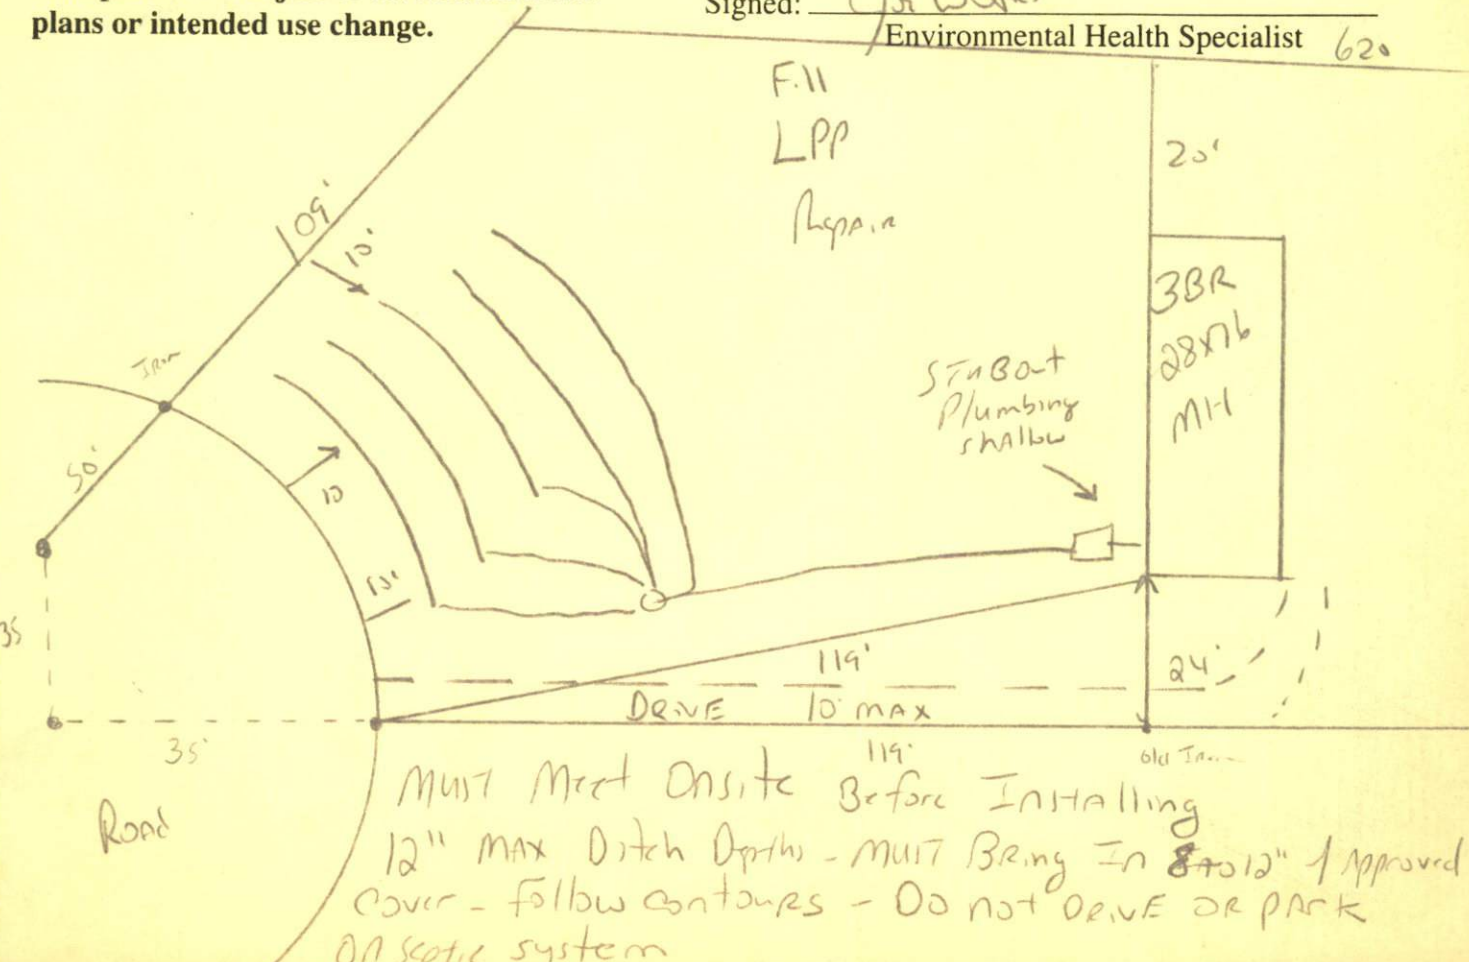 plans or intended use change.
Signed:
Environmental Health Specialist
620
Fill
LPP
Repair
20'
109'
10'
Iron
50'
10
10'
35
35'
Road
3BR
28x76
MH
STUBOut
Plumbing
shallow
24'
119'
DRIVE 10' MAX
119'
old Iron
MUST Meet Onsite Before Installing
12" MAX Ditch Depths - MUST Bring In 8 to 12" of Approved
Cover - Follow contours - Do not DRIVE OR PARK
on septic system